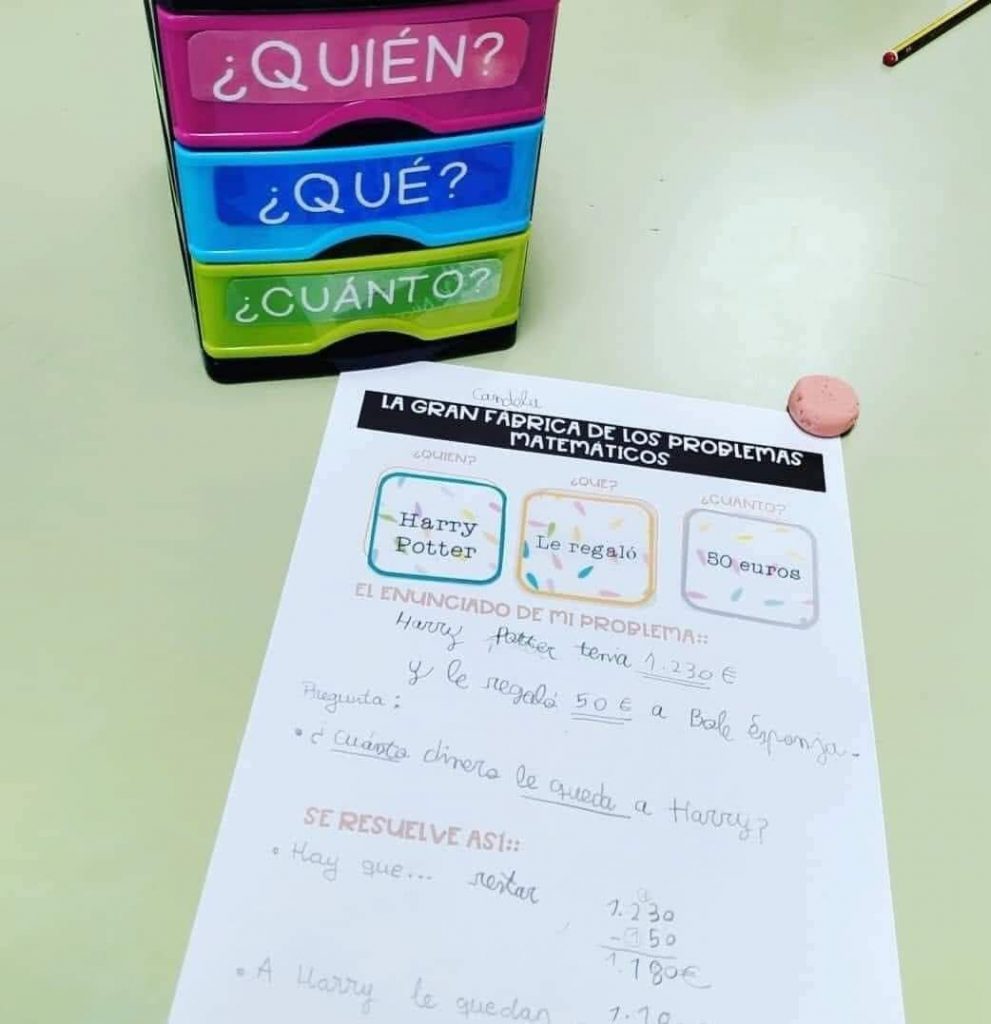 ¿QUIÉN?
¿QUÉ?
¿CUÁNTO?
LA GRAN FÁBRICA DE LOS PROBLEMAS
MATEMÁTICOS
¿QUIEN?
¿QUE?
¿CUANTO?
Harry
Potter
Le regaló
50 euros
EL ENUNCIADO DE MI PROBLEMA::
Harry Potter tenia 1.230 €
y le regaló 50 € a Bob Esponja.
Pregunta:
• ¿cuánto dinero le queda a Harry?
SE RESUELVE ASÍ::
• Hay que... restar
1.230
- 50
1.180€
• A Harry le quedan